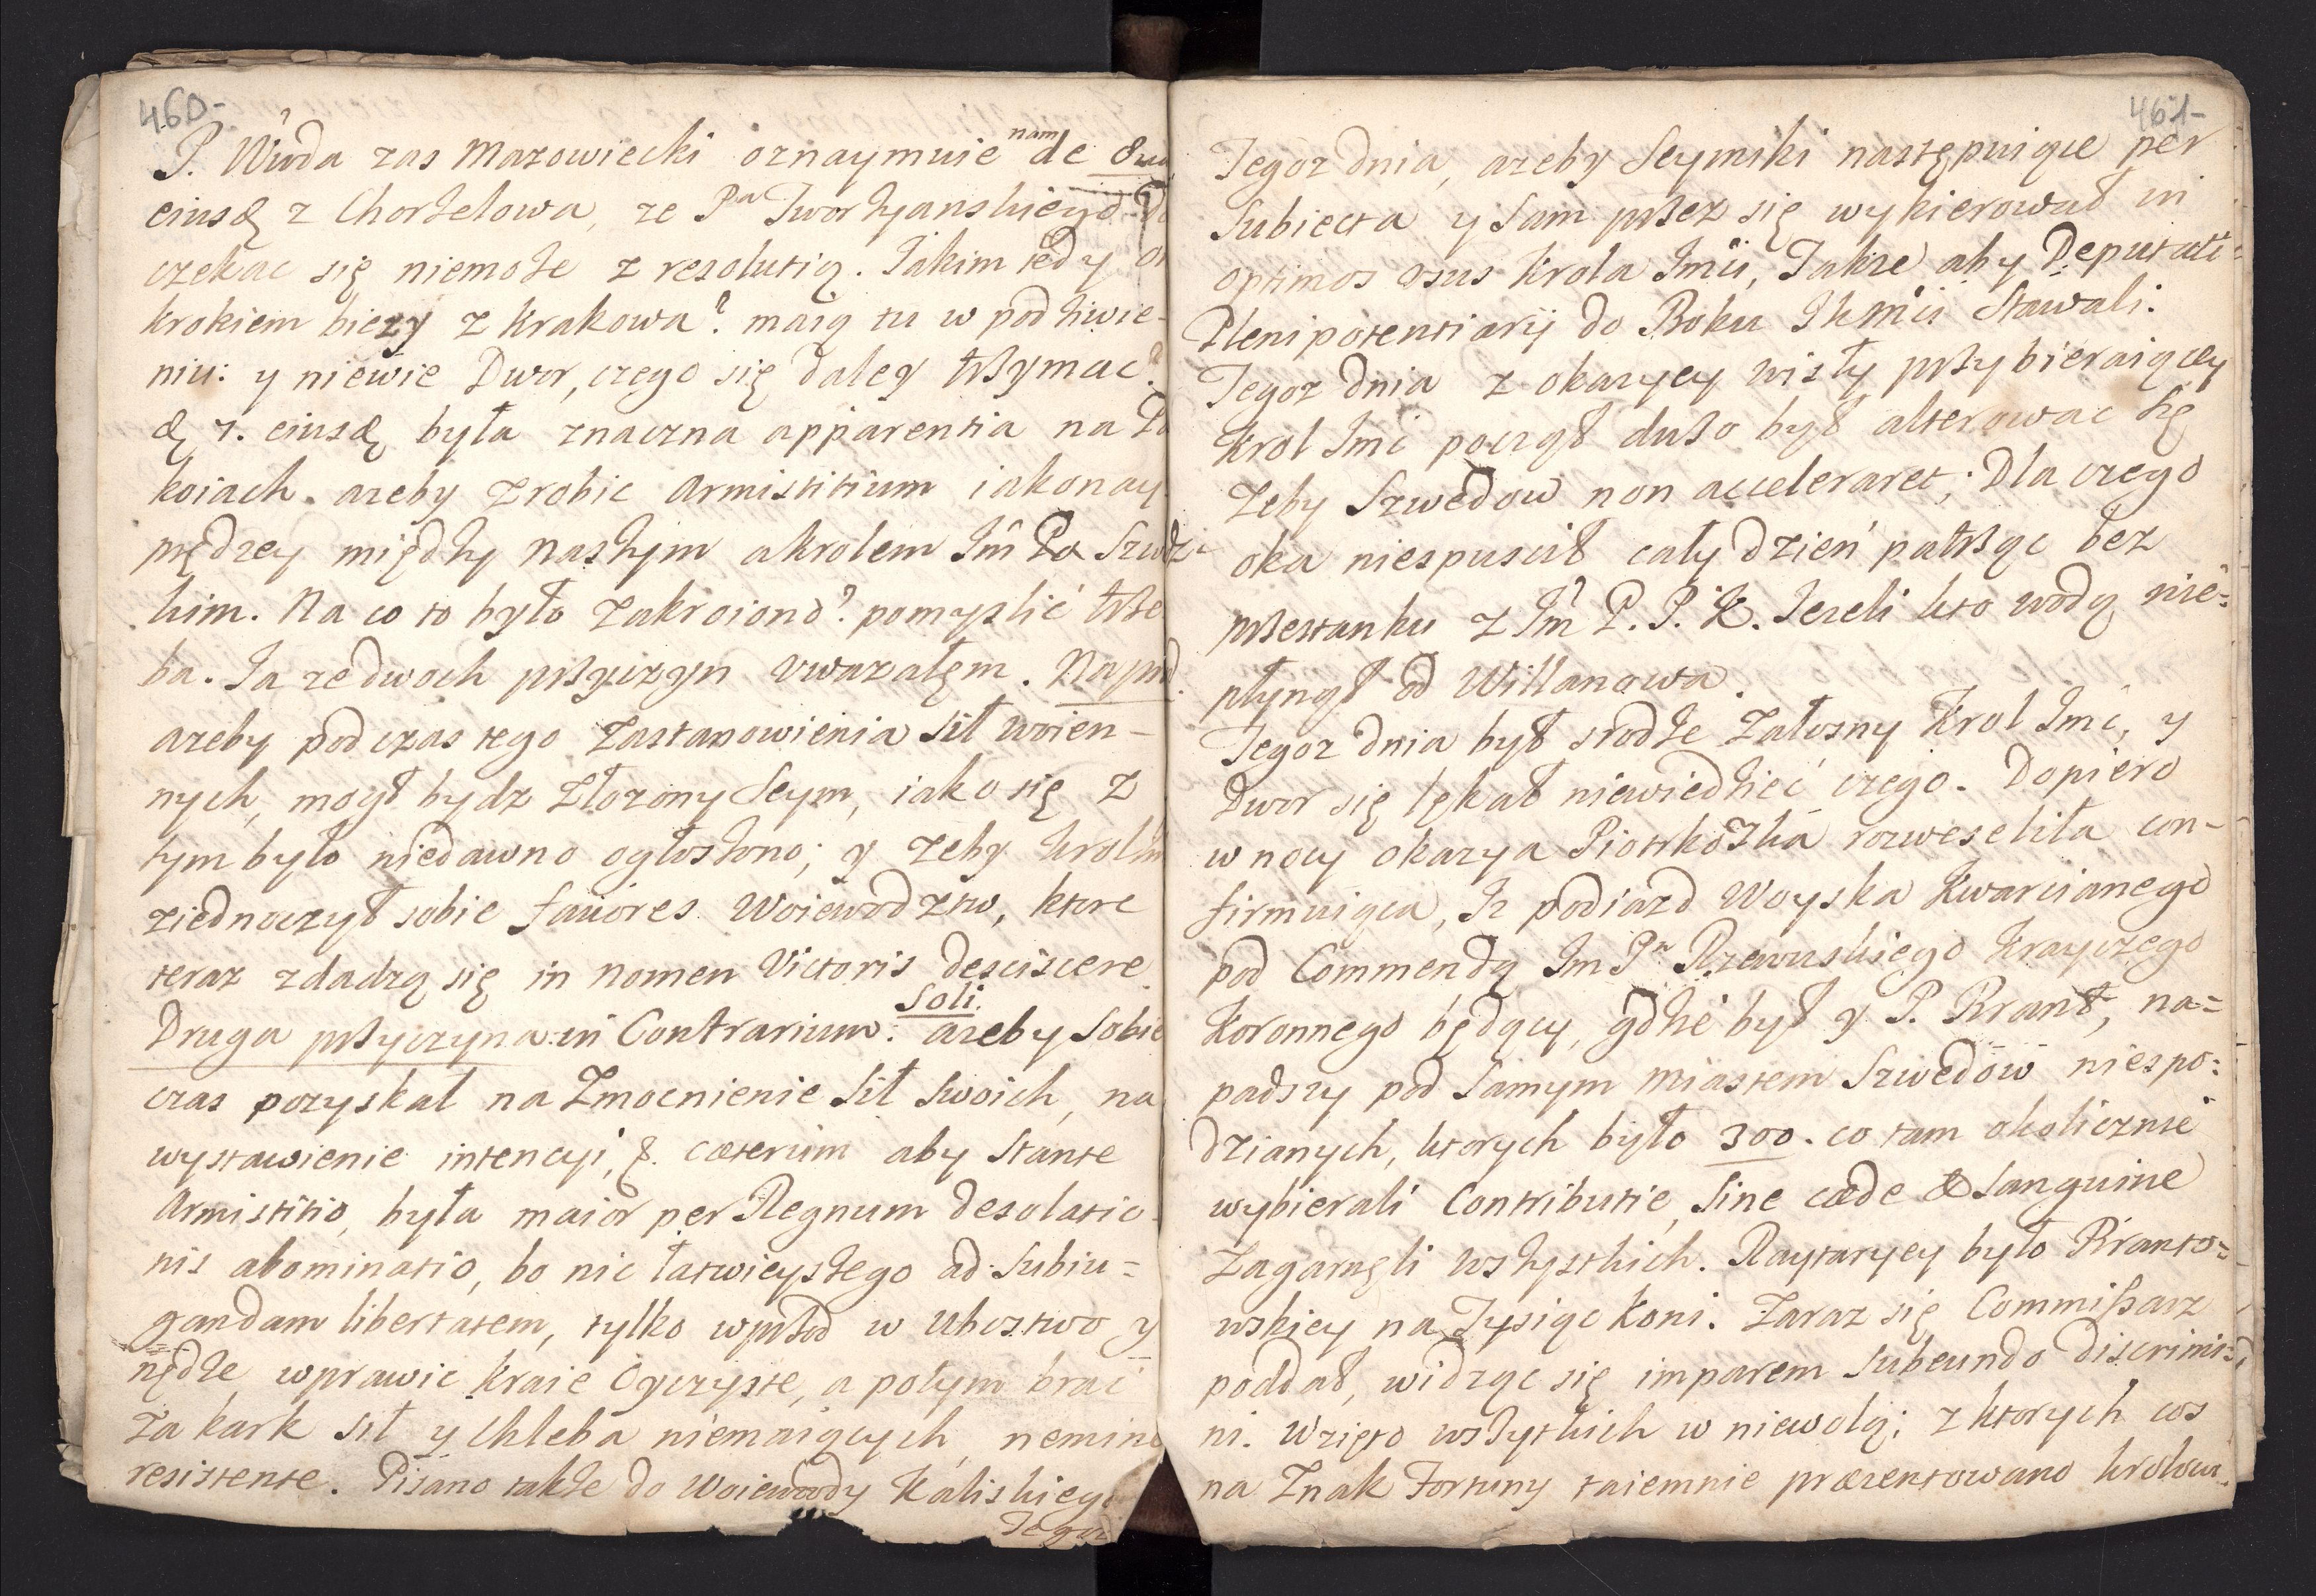 460-
P. Wwda zas Mazowiecki oznaymuie nam de 8va
eiusd z Chorzelowa, ze Pa Tworzyanskiego do
czekac się niemoże z resolutią. Jakim tedy on
krokiem biezy z Krakowa? maią tu w podziwie-
niu: y niewie Dwor, czego się daley trzymac?
d 7. eiusd była znaczna apparentia na Po
koiach. azeby zrobic Armistitium iakonay
prędzey między naszym a krolem Im Pa Szwedz-
kim. Na co to było zakroiono? pomyslić trze
ba. Ja ze dwoch przyczyn uwazałęm. Naprzod.
azeby podczas tego zastanowienia sił woien-
nych, mogł bydz złozony Seym, iako się z
tym było niedawno ogłoszono; y zeby krolm
ziednoczył sobie favores Woiewodztw, ktore
teraz zdadzą się in nomen Victoris desciscere.
Druga przyczyna in Contrarium: soli azeby sobie
czas pozyskal na Zmocnienie sił swoich, na
wystawienie intencyi, &. cæterum aby stante
Armistitio, była maior per Regnum desolatio-
nis abominatio, bo nic łatwieyszego ad subiu=
gandam libertatem, tylko wprzod w ubostwo y
nędze wprawic kraie Oyczyste, a potym brać
za kark sił y chleba niemaiących, nemine
resistente. Pisano także do Woiewody Kaliskiego
Tegoz
461-
Tegoz dnia, azeby Seymiki następuiące per
Subiecta y sam przez się wykierował in
optimos usus Krola Imci, Takze aby Deputati=
Plenipotentiarij do Boku JKmci stawali.
Tegoz dnia z okazycy wisły przybieraiącey
Krol Imc począł dużo był alterowac się
zeby Szwedow non acceleraret; Dla czego
oka niespuscił cały dzień patrząc bez
przestanku z Im P. P. K. Jezeli kto wodą nie=
płynął od Willanowa.
Tegoz dnia był srodze żałosny Krol Imc, y
Dwor się lękał niewiedzieć czego. Dopiero
w nocy okazya Piotrkozka rozweseliła con-
firmuiąca, Iz podiazd Woyska Kwarcianego
pod Commendą Im Pa Rzewuskiego Krayczego
Koronnego będący, gdzie był y P. Brant, na=
padszy pod samym miastem Szwedow niespo=
dzianych, ktorych było 300. co tam okolicznie
wybierali Contributie, sine cæde & sanguine
zagarnęli wszystkich. Raytaryey było Branto=
wskiey na Tysiąc koni. Zaraz się Commissarz
poddał, widząc się imparem subeundo discrimi=
ni. Wzięto wszytkich w niewolą; z ktorych cos
na Znak Fortuny taiemnie præzentowano krolowi.